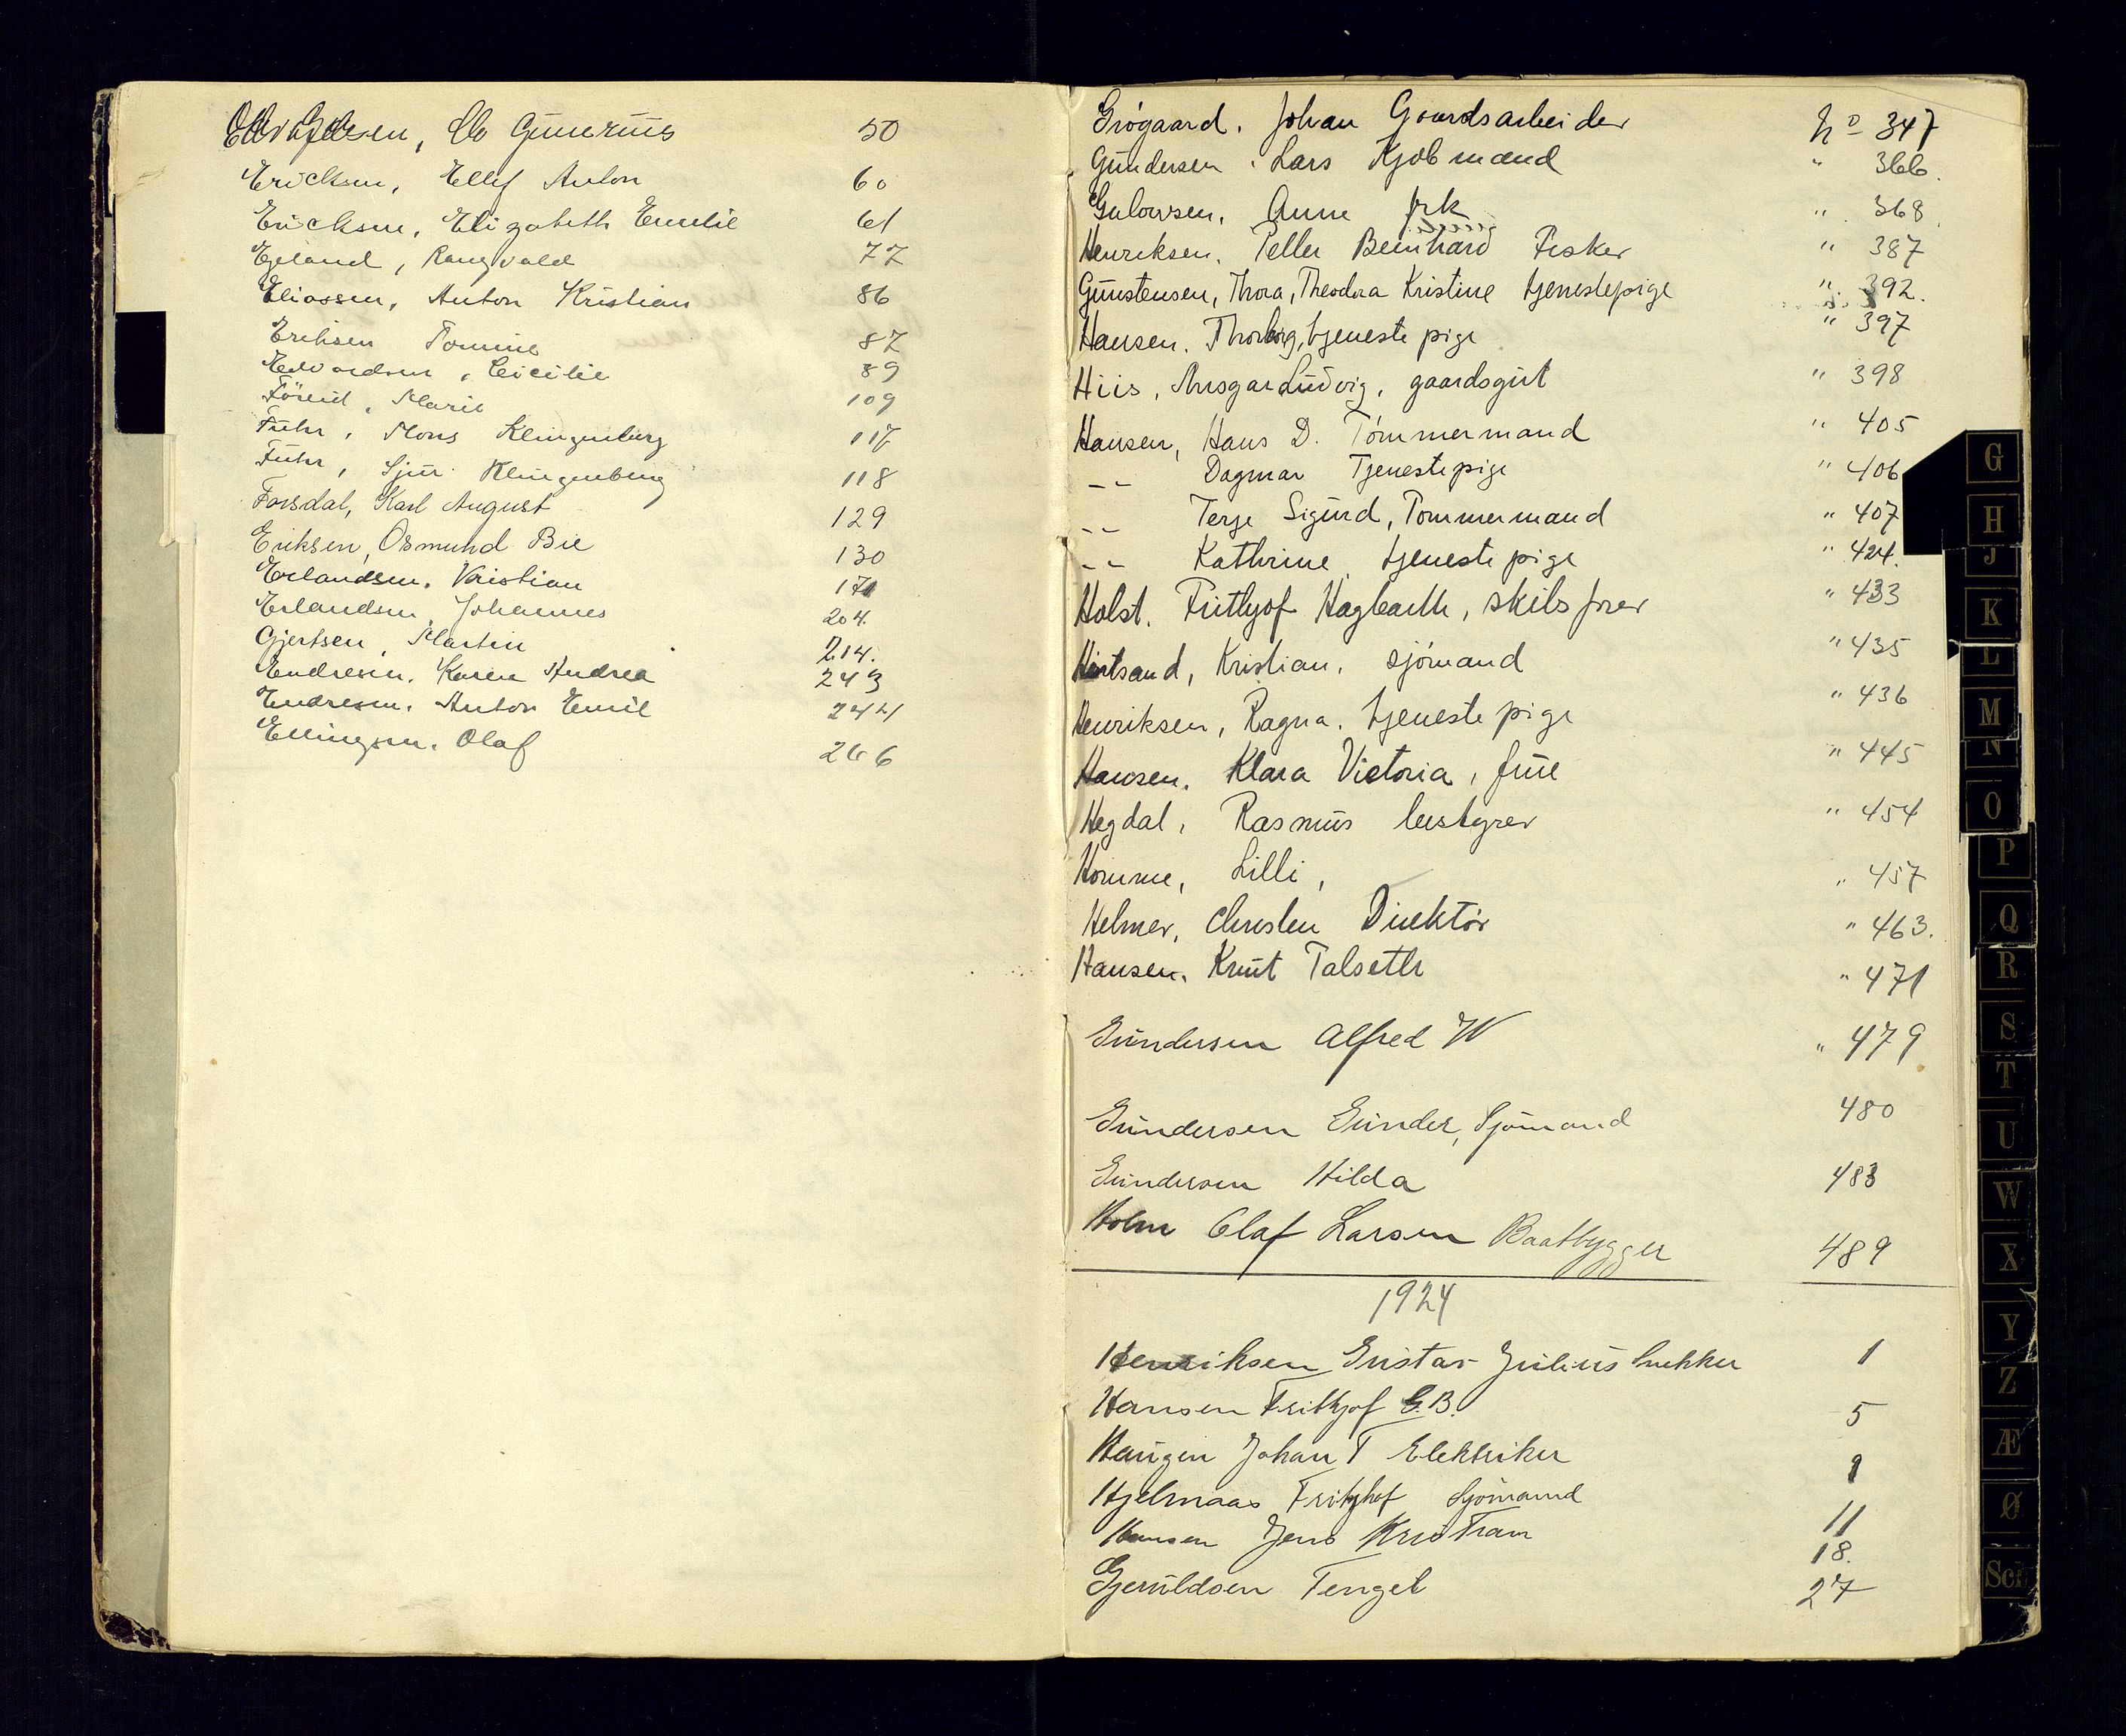 Gunerius 50
Ericksen, Ellef Anton 60
Ericksen, Elizabeth Emelie 61
Egeland, Rangvald 77
Eliassen, Anton Kristian 86
Eriksen Tomine 87
Edvardsen, Cicilie 89
Marie 109
Fuhr, Mons Klingenberg 117
Fuhr, Sjur Klingenberg 118
Forsdal, Karl August 129
Eriksen, Osmund Bie 130
Erlandsen. Kristian 171
Erlandsen, Johannes 204.
Gjertsen, Martin 214.
Endresen. Karen Andrea 243
Endresen. Anton Emil 244
Ellingsen. Olaf 266
Grógaard. Johan Gaardsarbeider No 347
Gundersen. Lars Kjøbmand " 366.
Gulowsen. Anne frk " 368.
Henriksen. Peller Beinhard Fisker " 387
Gunstensen, Thora, Theodora Kristine tjenestepige " 392.
Hansen. Thorborg, tjeneste pige " 397
Hiis, Ansgar Ludvig, gaardsgut " 398
Hansen, Hans D. Tómmermand " 405
-- Dagmar Tjenestepige " 406
-- Terje Sigurd, Tommermand " 407
-- Kathrine tjeneste pige " 424.
Holst. Frithjof Hagbarth, skibsfører " 433
Kristian, sjómand " 435
Henriksen, Ragna. tjeneste pige " 436
Hansen. Klara Victoria, frue " 445
Hegdal, Rasmus bestyrer " 454
Homme, Lilli, " 457
Helmer, Christen Direktór " 463.
Hansen. Knut Talseth " 471
Gundersen Alfred W " 479
Gundersen Gunder, Sjömand 480
Gundersen Hilda 483
Holm Olaf Larsen Baatbygger 489
1924
Henriksen Gustav Julius Snekker 1
Hansen Frithjof G.B. 5
Haugen Johan T Elektriker 9
Hjelmaas Fritzhof Sjömand 11
Hansen Jens Kristian 18.
Gjeruldsen Tengel 27
G
H
J
K
L
M
N
O
P
Q
R
S
T
U
W
X
Y
Z
Æ
Ø
Sch